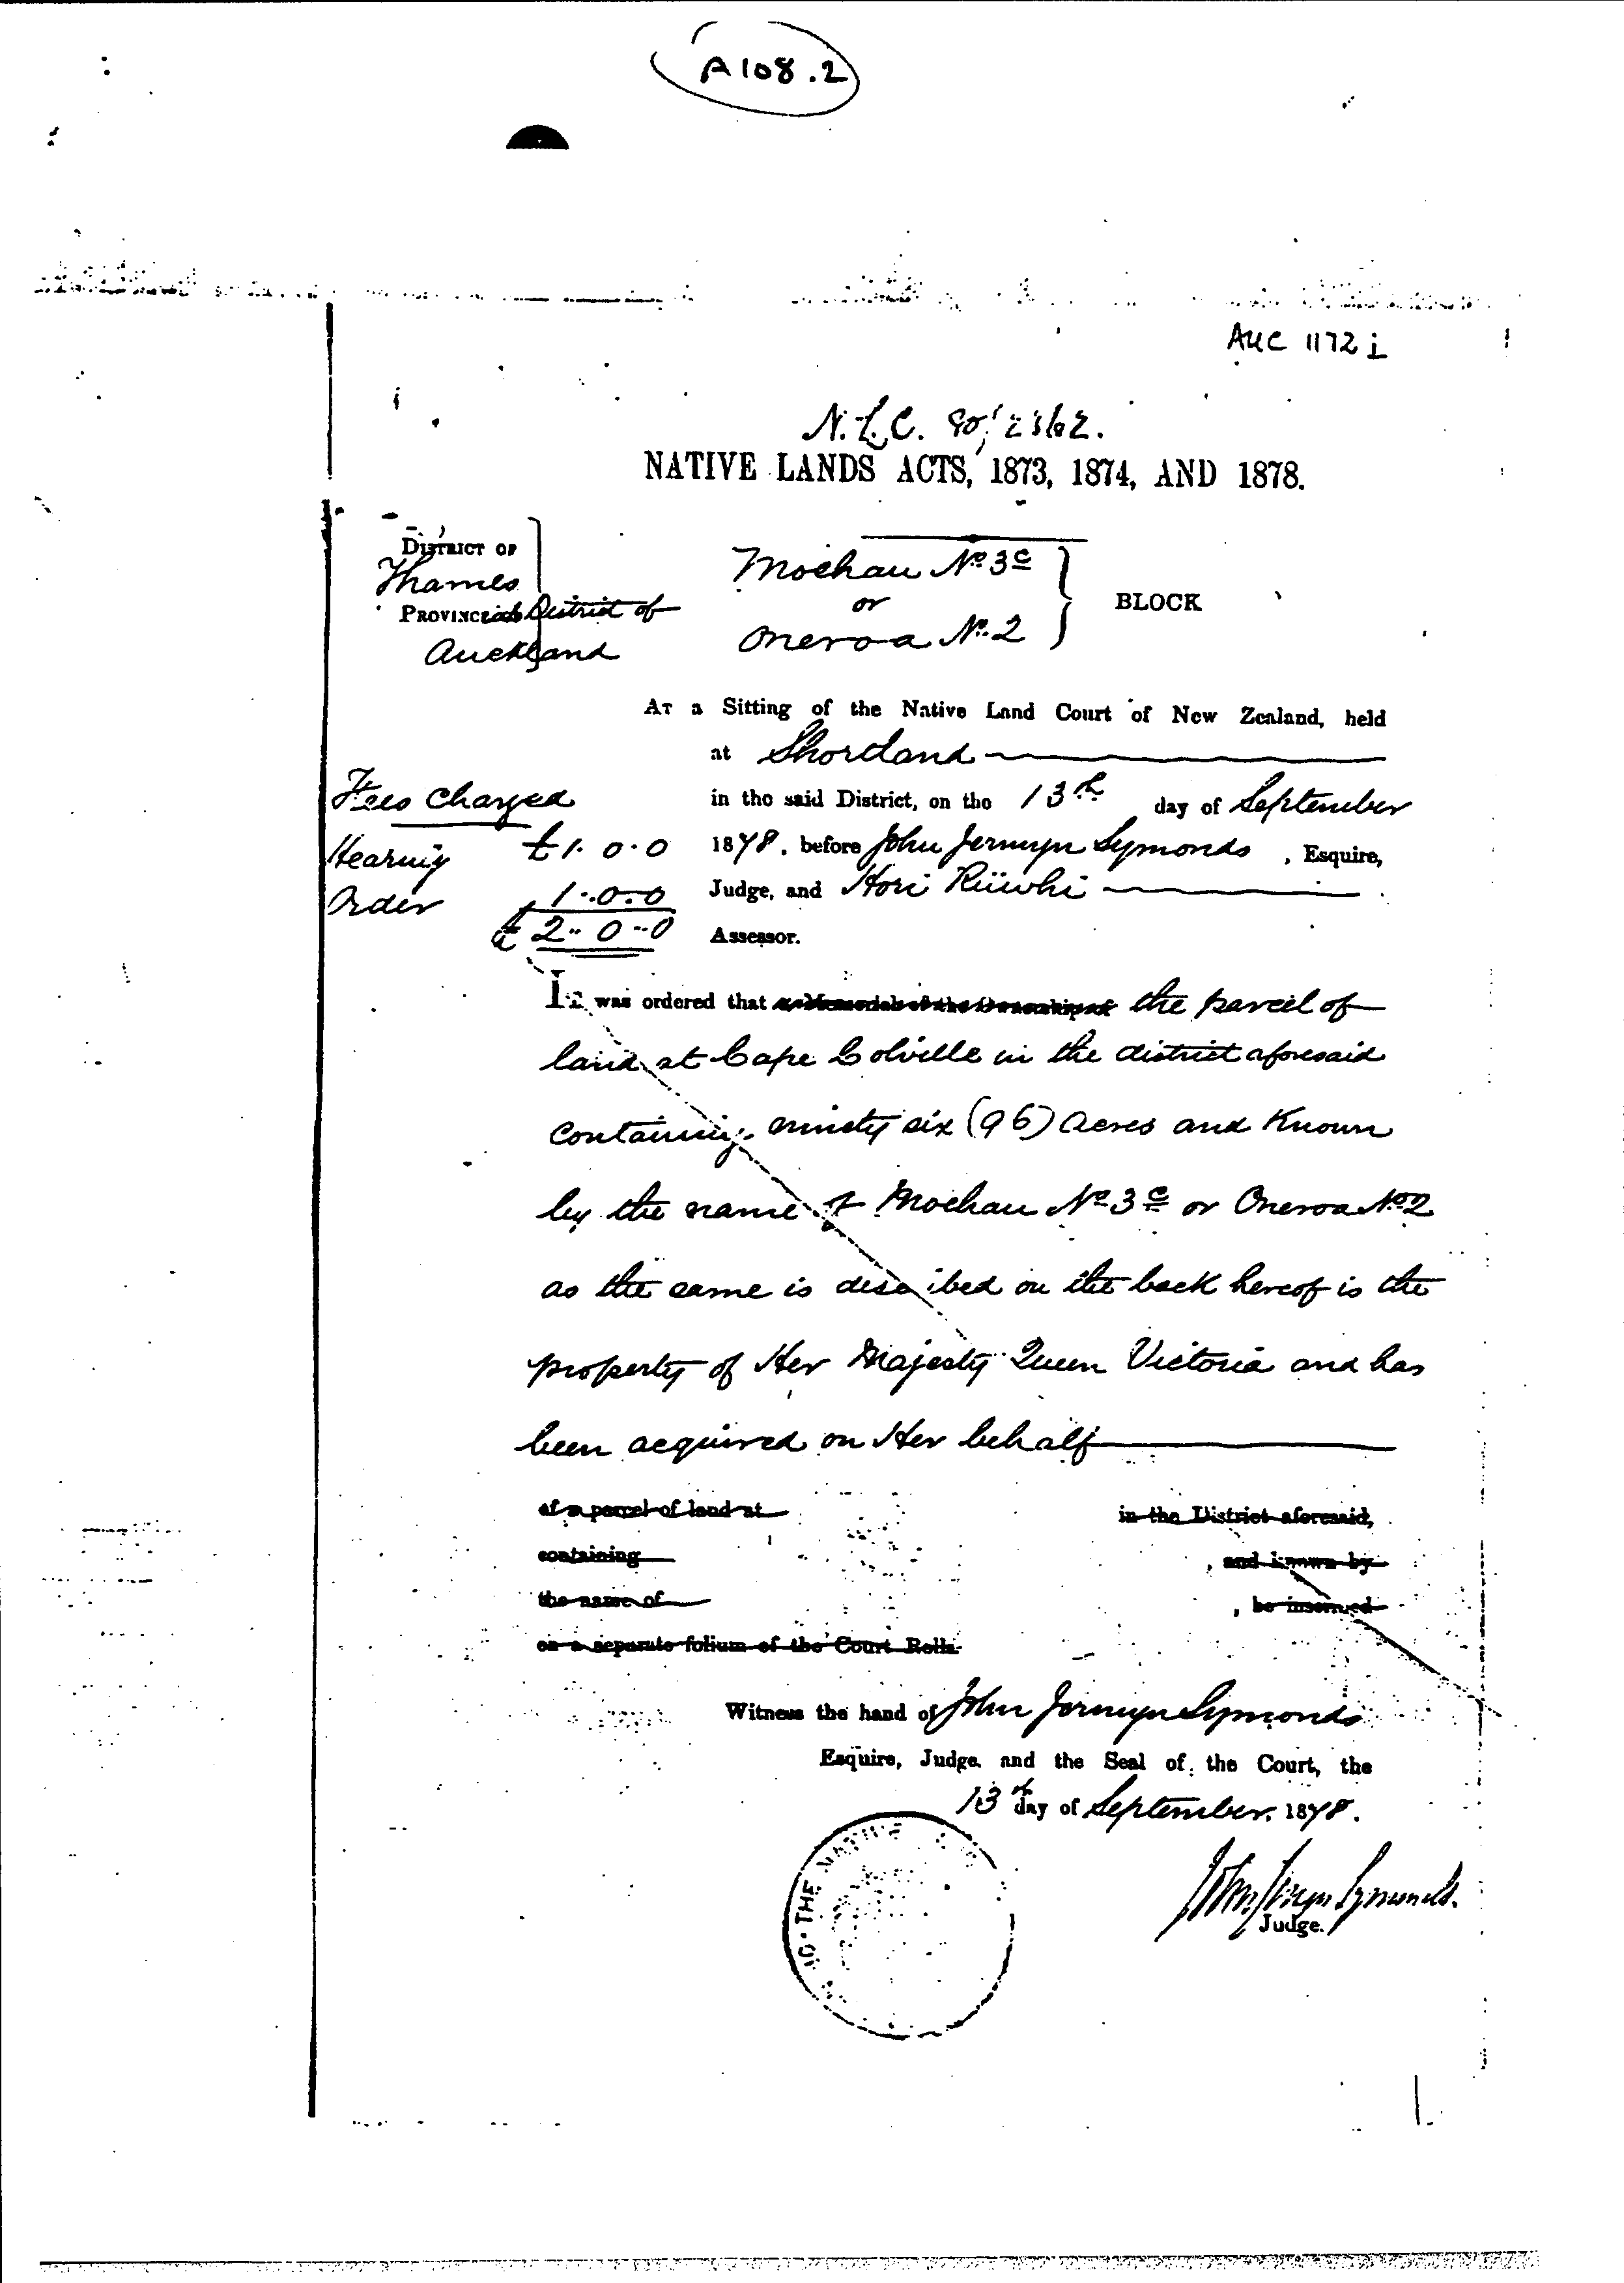 A108.2
AUC 1172 i
N.L.C. 80/2362.
NATIVE LANDS ACTS, 1873, 1874, AND 1878.
DISTRICT OF
Thames
PROVINCial District of
Auckland
Moehau No 3c
or
Oneroa No. 2
BLOCK
AT a Sitting of the Native Land Court of New Zealand, held
at Shortland
in the said District, on the 13th day of September
1878, before John Jermyn Symonds, Esquire,
Judge, and Hori Riiwhi
Assessor.
Fees Charged
Hearing £1. 0. 0
Order 1..0..0
£ 2.. 0..0
It was ordered that a Memorial of the Ownership of the parcel of
land at Cape Colville in the district aforesaid
containing ninety six (96) Acres and Known
by the name of Moehau No 3c or Oneroa No 2
as the same is described on the back hereof is the
property of Her Majesty Queen Victoria and has
been acquired on Her behalf
of a parcel of land at in the District aforesaid,
containing , and known by
the name of , be inserted
on a separate folium of the Court Rolls.
Witness the hand of John Jermyn Symonds
Esquire, Judge and the Seal of the Court, the
13th day of September 1878.
John Jermyn Symonds.
Judge.
THE NATIVE